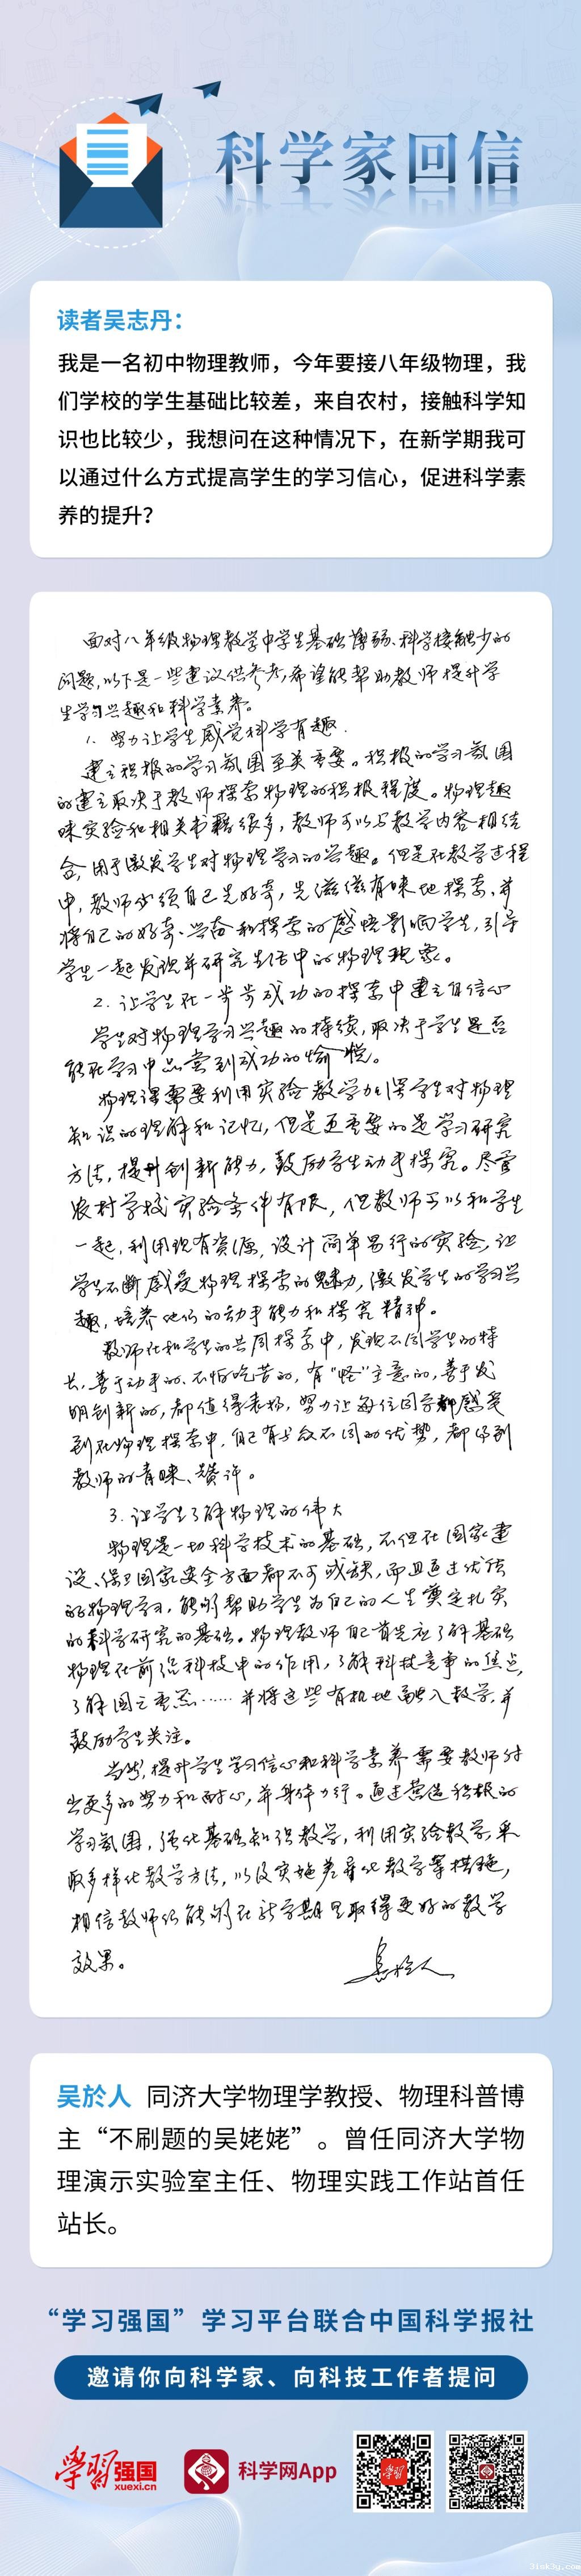 科学家回信
读者吴志丹：
我是一名初中物理教师，今年要接八年级物理，我
们学校的学生基础比较差，来自农村，接触科学知
识也比较少，我想问在这种情况下，在新学期我可
以通过什么方式提高学生的学习信心，促进科学素
养的提升？
面对八年级物理教学中学生基础薄弱、科学接触少的
问题，以下是一些建议供参考，希望能帮助教师提升学
生学习兴趣和科学素养。
1. 努力让学生感觉科学有趣.
建立积极的学习氛围至关重要。积极的学习氛围
的建立取决于教师探索物理的积极程度。物理趣
味实验和相关书籍很多，教师可以与教学内容相结
合，用于激发学生对物理学习的兴趣。但是在教学过程
中，教师必须自己先好奇，先滋滋有味地探索，并
将自己的好奇、兴奋和探索的感悟影响学生，引导
学生一起发现并研究生活中的物理现象。
2. 让学生在一步步成功的探索中建立自信心
学生对物理学习兴趣的持续，取决于学生是否
能在学习中品尝到成功的愉悦。
物理课需要利用实验教学加深学生对物理
知识的理解和记忆，但是更重要的是学习研究
方法，提升创新能力，鼓励学生动手探究。尽管
农村学校实验条件有限，但教师可以和学生
一起，利用现有资源，设计简单易行的实验，让
学生不断感受物理探索的魅力，激发学生的学习兴
趣，培养他们的动手能力和探究精神。
教师在和学生的共同探索中，发现不同学生的特
长，善于动手的、不怕吃苦的，有“怪”主意的，善于发
明创新的，都值得表扬，努力让每位同学都感受
到在物理探索中，自己有与众不同的优势，都得到
教师的青睐、赞许。
3. 让学生了解物理的伟大
物理是一切科学技术的基础，不但在国家建
设、保卫国家安全方面都不可或缺，而且通过优质
的物理学习，能够帮助学生为自己的人生奠定扎实
的科学研究的基础。物理教师自己首先应了解基础
物理在前沿科技中的作用，了解科技竞争的焦点，
了解国之重器……并将这些有机地融入教学，并
鼓励学生关注。
当然，提升学生学习信心和科学素养需要教师付
出更多的努力和耐心，并身体力行。通过营造积极的
学习氛围，强化基础知识教学，利用实验教学，采
取多样化教学方法，以及实施差异化教学等措施，
相信教师们能够在新学期里取得更好的教学
效果。
吴於人
吴於人 同济大学物理学教授、物理科普博
主“不刷题的吴姥姥”。曾任同济大学物
理演示实验室主任、物理实践工作站首任
站长。
“学习强国”学习平台联合中国科学报社
邀请你向科学家、向科技工作者提问
学习强国 xuexi.cn
科学网App